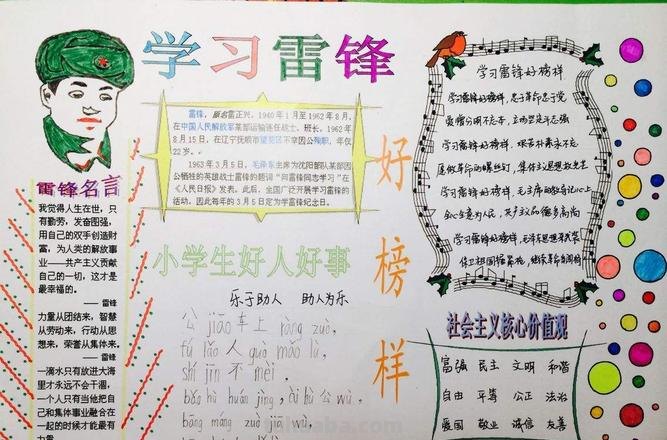 学习雷锋
好榜样
雷锋,原名雷正兴,1940年1月至1962年8月,
在中国人民解放军某部运输连任战士、班长。1962年
8月15日,在辽宁抚顺市望花区不幸因公殉职,年仅
22岁。
1963年3月5日,毛泽东主席为沈阳部队某部因
公牺牲的英雄战士雷锋的题词“向雷锋同志学习”在
《人民日报》发表。此后,全国广泛开展学习雷锋的
活动。因此每年的3月5日定为学雷锋纪念日。
雷锋名言
我觉得人生在世,只
有勤劳,发奋图强,
用自己的双手创造财
富,为人类的解放事
业——共产主义贡献
自己的一切,这才是
最幸福的。
——雷锋
力量从团结来,智慧
从劳动来,行动从思
想来,荣誉从集体来。
——雷锋
一滴水只有放进大海
里才永远不会干涸,
一个人只有当他把自
己和集体事业融合在
一起的时候才能最有
力量
小学生好人好事
乐于助人 助人为乐
公 jiāo 车上 ràng zuò,
fú lǎo 人 guò mǎo lù,
shí jīn 不 mèi,
bǎo hù huán jìng, ài hù 公 wù,
bāng máng zuò jiā wù,
学习雷锋好榜样
学习雷锋好榜样,忠于革命忠于党
爱憎分明不忘本,立场坚定斗志强
学习雷锋好榜样,艰苦朴素永不忘
愿做革命的螺丝钉,集体主义思想放光芒
学习雷锋好榜样,毛主席的教导记心上
全心全意为人民,共产主义品德多高尚
学习雷锋好榜样,毛泽东思想来武装
保卫祖国握紧枪,继续革命当闯将
社会主义核心价值观
富强 民主 文明 和谐
自由 平等 公正 法治
爱国 敬业 诚信 友善